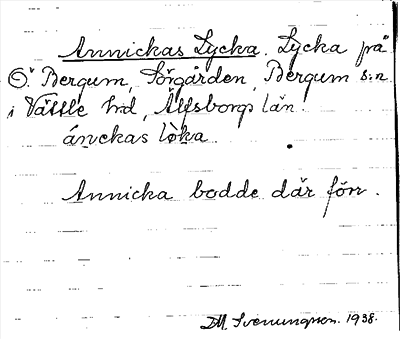 Annickas Lycka. Lycka på
Ö. Bergum, Sörgården, Bergum s:n
i Vättle hd, Älfsborgs län.
ánckas lo̊ka
Annicka bodde där förr.
D.M. Svenungsson. 1938.